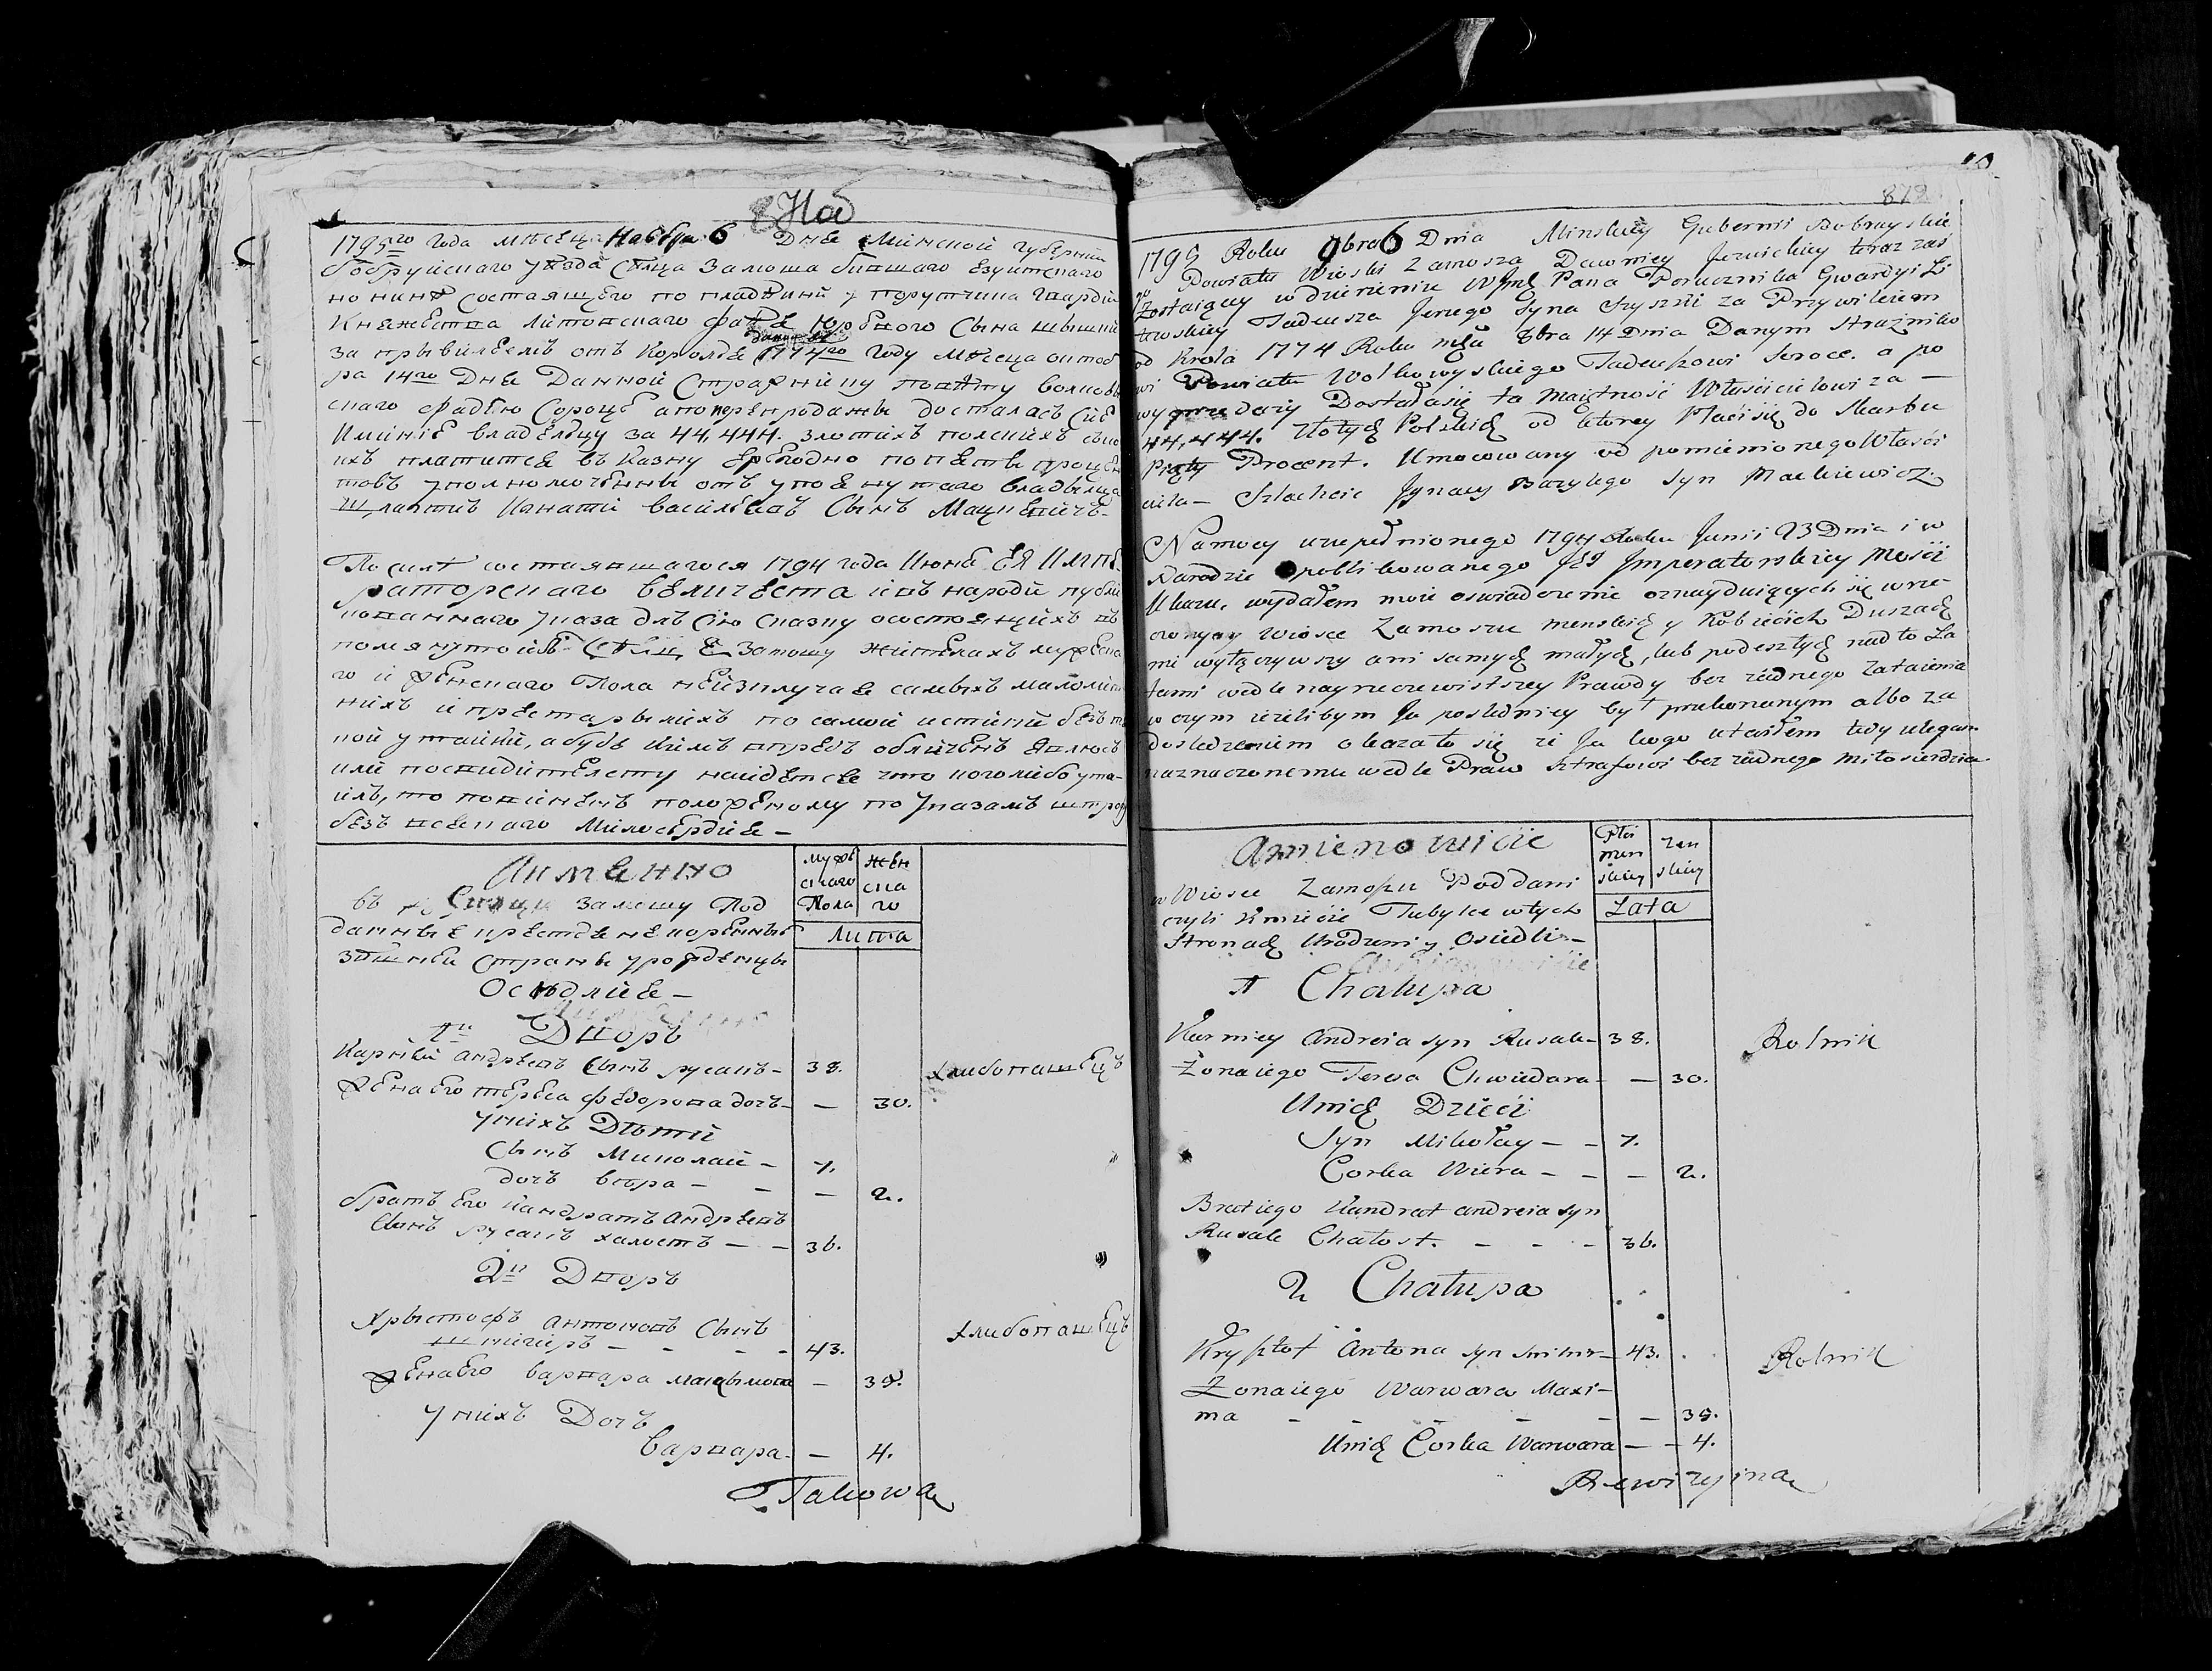 1795го года мѣсеца Ноебра 6 Дне Минской губернии
бобруйского уезда Селца Замоша бывшаго Езуитского
но нине состаящего по владѣнии у порутчика гвардии
Княжества литовского фаде Юрьвого Сына шышки
за прывилеемъ отъ Короле 1774го году месеца октоб
ра 14го Дне Данной Стражнику повѣту волковы
ского фадею Сороце а по перепродажы досталась сие
Имѣние владельцу за 44,444. злотихъ полскихъ съ ко
ихъ платитсе въ казну ежегодно по пети процен
товъ уполномоченны отъ упоенутаго владельца
шлахтичъ Игнатй василевъ Сынъ Мацкевичъ-
По силѣ состаявшагося 1794 года Июна ЕЯ Импе
раторскаго величества и въ народи публи
кованнаго указа далъ сию сказку о состоещихъ въ
помянутой Селце Замошу жителахъ мужеска
го и женскаго Пола не изключае самыхъ малолет
нихъ и престарелихъ по самой истини безъ вс
кой утайки, а буде кимъ впредь обличенъ явлюсь
или по свидителству найдетсе что кого либо ута-
илъ, то повиненъ положеному по Указамъ штрафу
безъ всекаго Милосердие-
Аименно
мужес
каго
Пола
жен
ска
го
въ Селци Замошу Под
данные просте некоренные
Лита
здешней Страны урожденцы
Оседлие-
1й Дворъ
Карней андреевъ Сынъ русакъ- 38. хлибопашецъ
Жена его тереса федорова дочъ- - 30.
у нихъ Дѣти
Сынъ Миколай - 7.
дочъ вера - - - 2.
братъ Его Кандратъ андреевъ
Сынъ русакъ халостъ - - 36.
2й Дворъ
Хрыстофъ антоновъ Сынъ
шникиръ - - - - 43. хлибопашецъ
Жена Его варвара максымова - 39.
у нихъ Дочъ
варвара- - 4.
Takowa
10
878
1795 Roku 9bra 6 Dnia Minskiey Gubernii Bobruyskie
go Powiatu Wioski Zamosza Dawniey Jezuickiey teraz zaś
zostaiącey w dzierżeniu W Jmć Pana Porucznika Gwardyi Li
tewskiey Tadeusza Jerzego Syna Szyszki za Przywileiem
od Krola 1774 Roku mca 8bra 14 Dnia Danym Strażniko
wi Powiatu Wołkowyskiego Tadeuszowi Soroce. a po
wyprzedaży Dostała się ta Maiętność Właścicielowi za —
44,444. Złotych Polskich od ktorey Płaci się do Skarbu
Piąty Procent. Umocowany od pomienionego Właści
ciela - Szlachcic Jgnacy Bazylego Syn Mackiewicz.
Namocy uzupełnionego 1794 Roku Junii 23 Dnia i w
Narodzie opublikowanego Jey Jmperatorskiey Mości
Ukazu, wydałem moie oswiadczenie oznayduiących się w rze
czoney Wiosce Zamoszu menskich y Kobiecich Duszach
nie wyłączywszy ani samych małych, lub podeszłych nad to La
tami wedle nayrzeczewistszey Prawdy bez żadnego Zataienia
w czym ieżelibym Ja posledniey był przekonanym albo za
dosledzeniem okazało się że Ja kogo utaiłem tedy ulegam
naznaczonemu wedle Praw sztrafowi bez żadnego miłosierdzia
Amienowicie
Płci
men
skiey
żen
skiey
w Wiosce Zamoszu Poddani
czyli Kmiecie Tubylce wtych
Lata
Stronach Urodzeni y Osiedli-
1 Chałupa
Karniey Andreia syn Rusak- 38. Rolnik
Żona iego Teresa Chwiedara- - 30.
Unich Dzieci
Syn Mikołay - - 7.
Corka Wiera - - - 2.
Brat iego Kandrat andreia syn
Rusak Chałost. - - - 36.
2 Chałupa
Krysztof Antona syn Sznikir- 43. Rolnik
Żona iego Warwara Maxi-
ma - - - - - 39.
Unich Corka Warwara - - 4.
Rewizyina